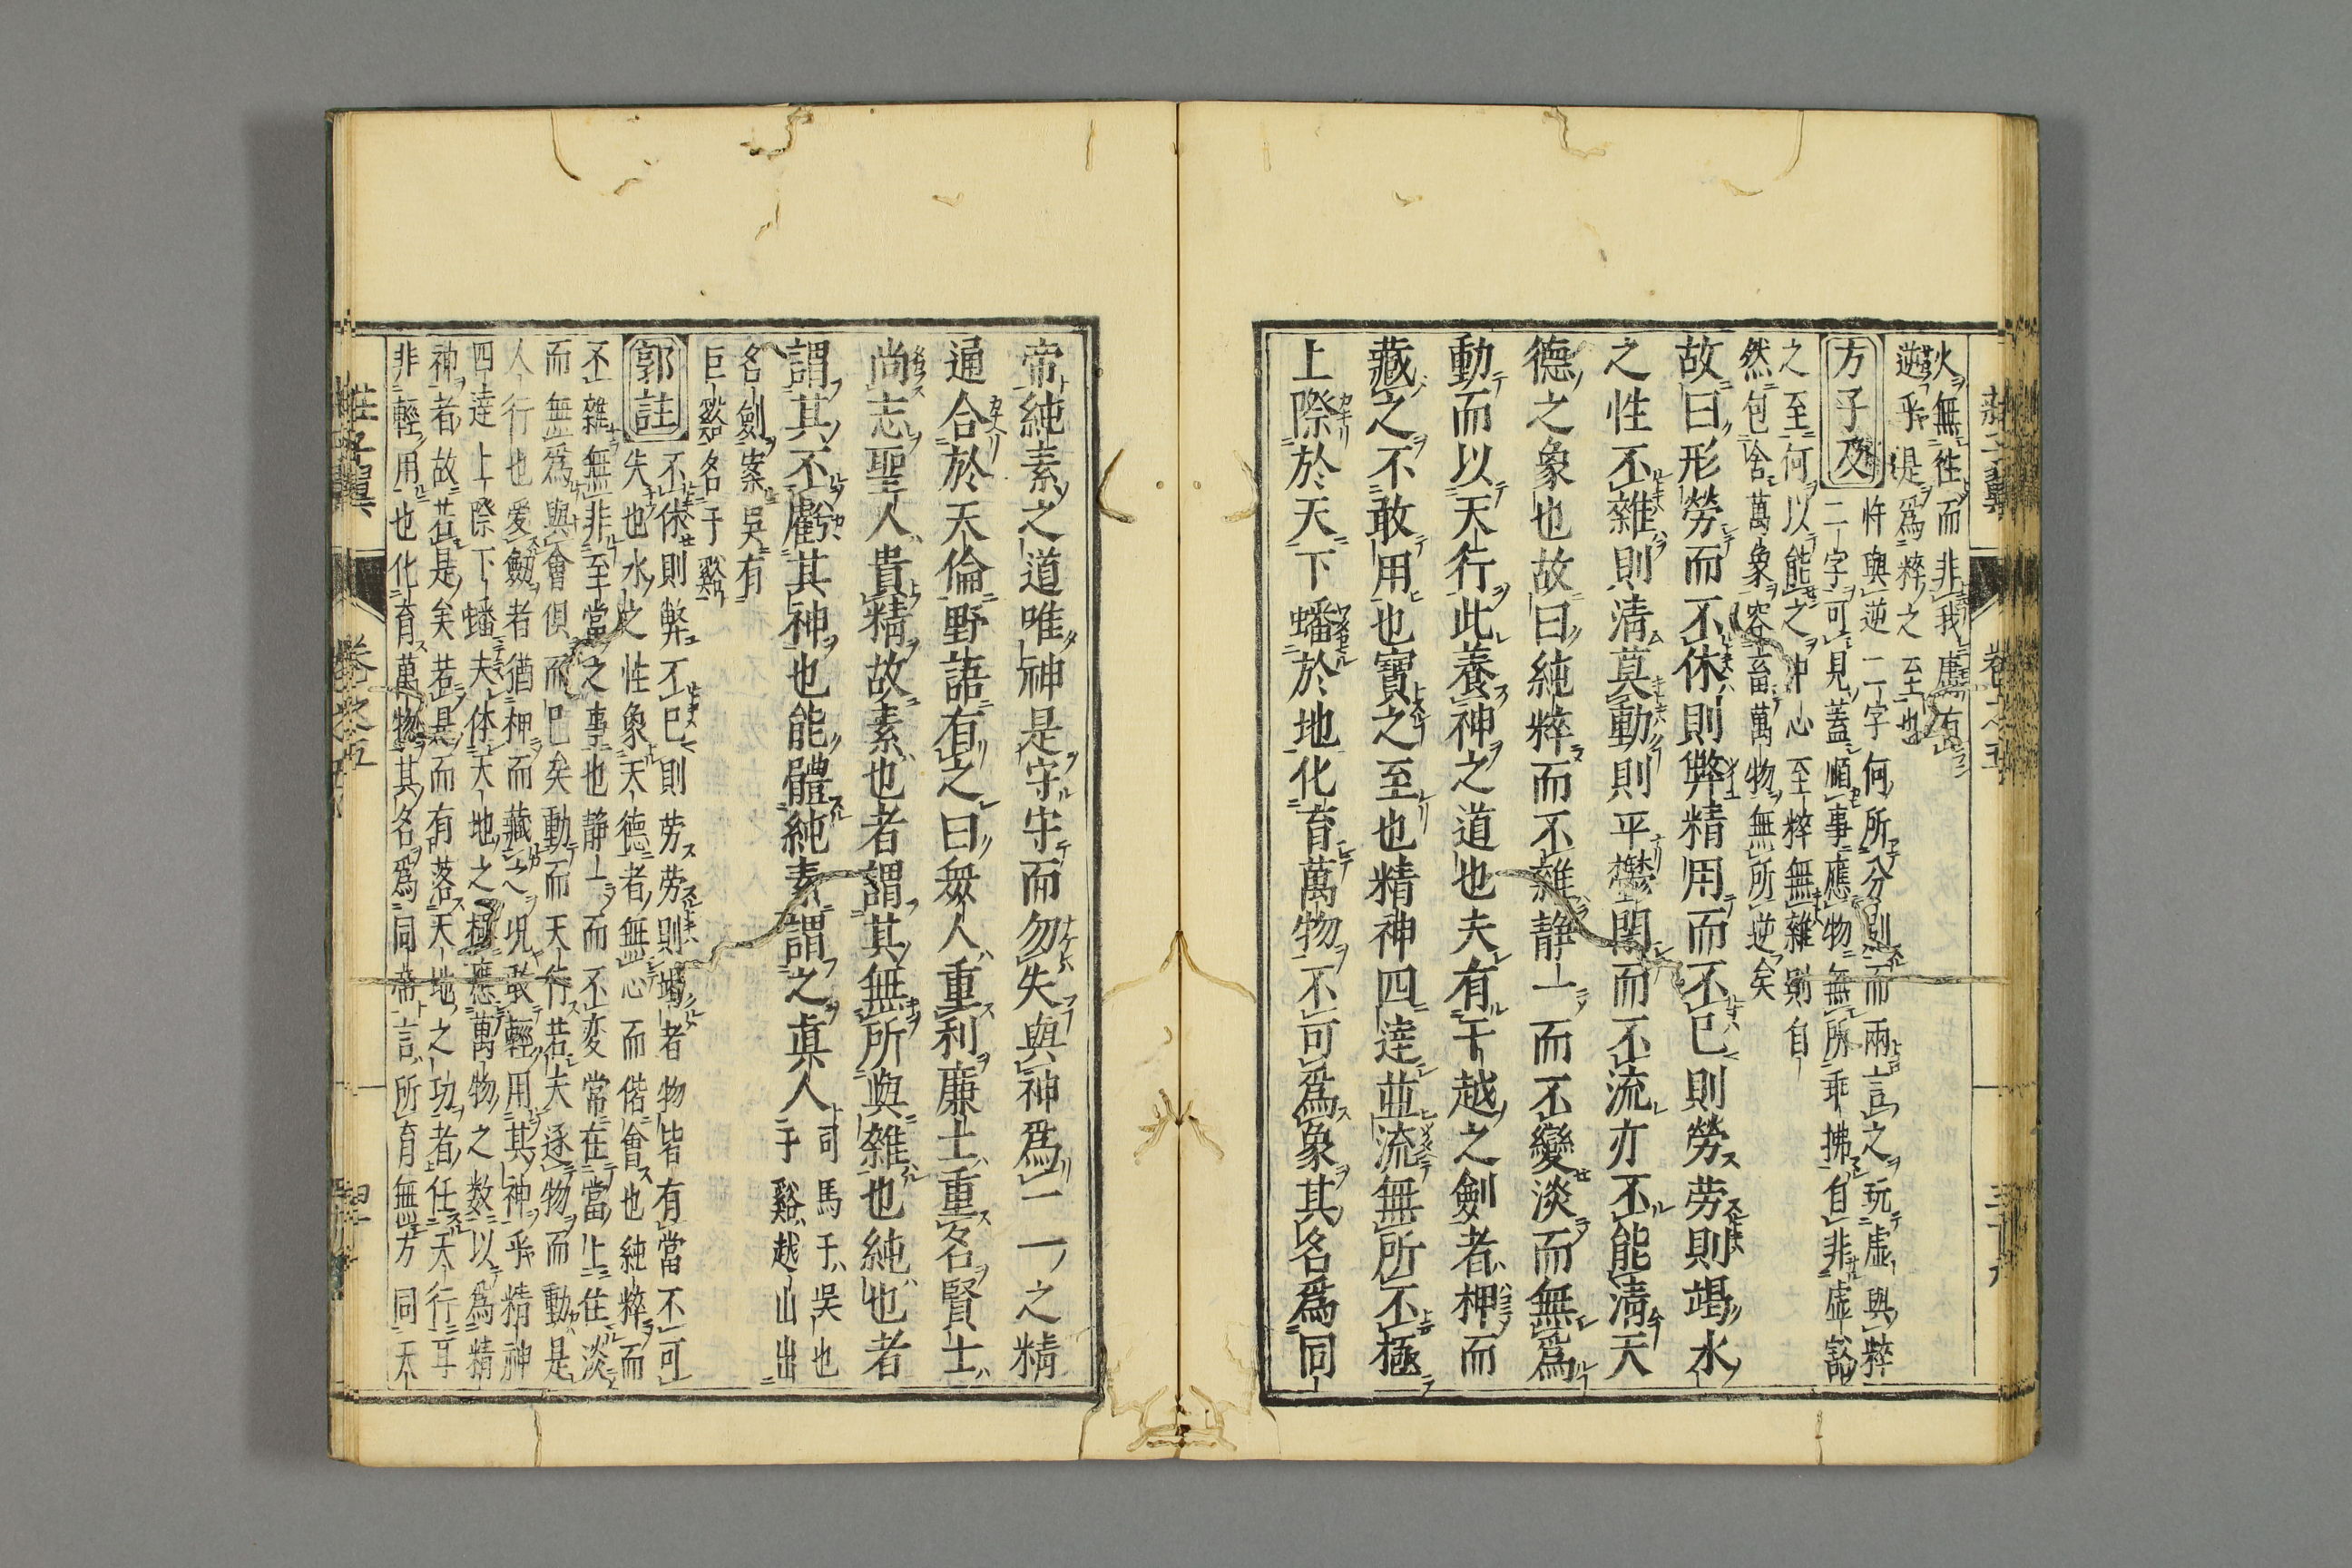 火無往而非我廬有
逆乎是爲粹之至也
方子及 忤與逆二字何所分別而兩言之玩虛與粹
二字可見蓋順事應物無所乖拂自非虛豁
之至何以能之冲心至粹無雜則自
然包含萬象容畜萬物無所逆矣
故曰形勞而不休則弊精用而不已則勞勞則竭水
之性不雜則清莫動則平鬱閉而不流亦不能清天
德之象也故曰純粹而不雜静一而不變淡而無爲
動而以天行此養神之道也夫有干越之劍者柙而
藏之不敢用也寶之至也精神四達並流無所不極
上際於天下蟠於地化育萬物不可爲象其名爲同
帝純素之道唯神是守守而勿失與神爲一一之精
通合於天倫野語有之曰衆人重利廉士重名賢士
尚志聖人貴精故素也者謂其無所與雜也純也者
謂其不虧其神也能體純素謂之眞人 司馬于吳也
于谿越山出
名劍案吳有
巨谿名于谿
郭註 不休則弊不已則労労則竭者物皆有當不可
失也水之性象天德者無心而偕會也純粹而
不雜無非至當之事也静一而不変常在當上住淡
而無爲與會俱而已矣動而天行若夫逐物而動是
人行也愛劔者猶柙而藏之况敢輕用其神乎精神
四達上際下蟠夫体天地之極應萬物之数以爲精
神者故若是矣若是而有落天地之功者任天行耳
非輕用也化育萬物其名爲同帝言所育無方同天
莊子翼 卷之五